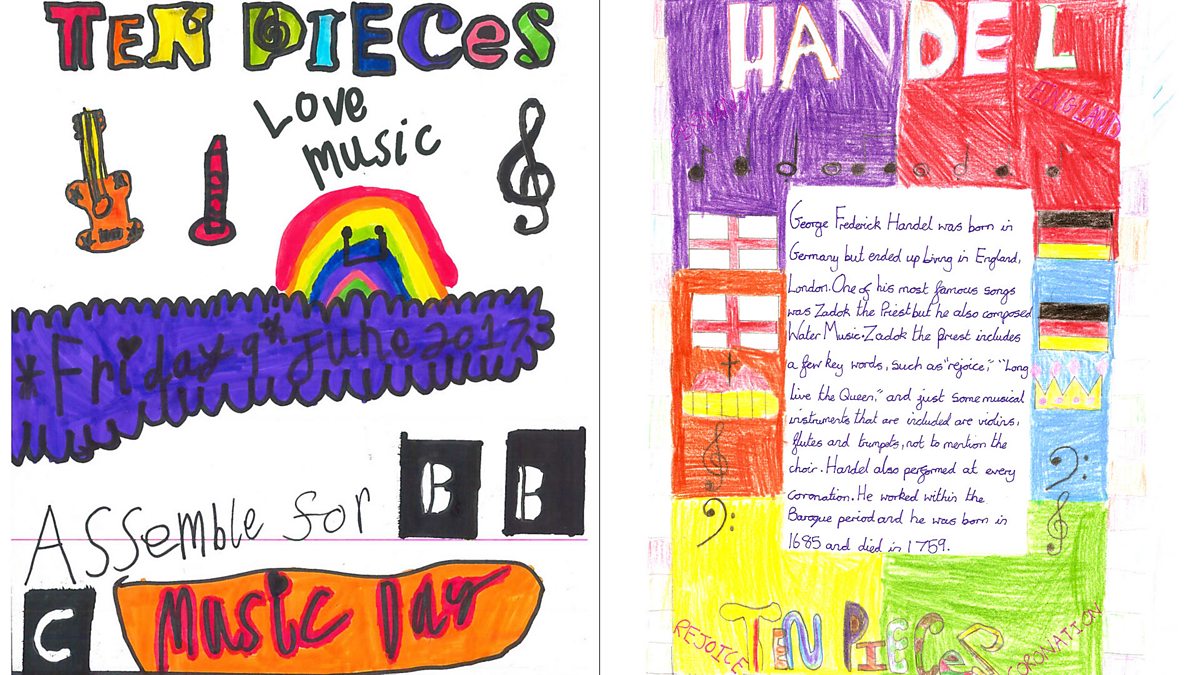 TEN PIECES
Love
music
*Friday 9* June 2017*
Assemble for B B
C Music Day
HANDEL
ENGLAND
George Frederick Handel was born in
Germany but ended up living in England,
London. One of his most famous songs
was Zadok the Priest but he also composed
Water Music. Zadok the Priest includes
a few key words, such as "rejoice", "Long
live the Queen," and just some musical
instruments that are included are violins,
flutes and trumpets, not to mention the
choir. Handel also performed at every
coronation. He worked within the
Baroque period and he was born in
1685 and died in 1759.
REJOICE TEN PIECES CORONATION